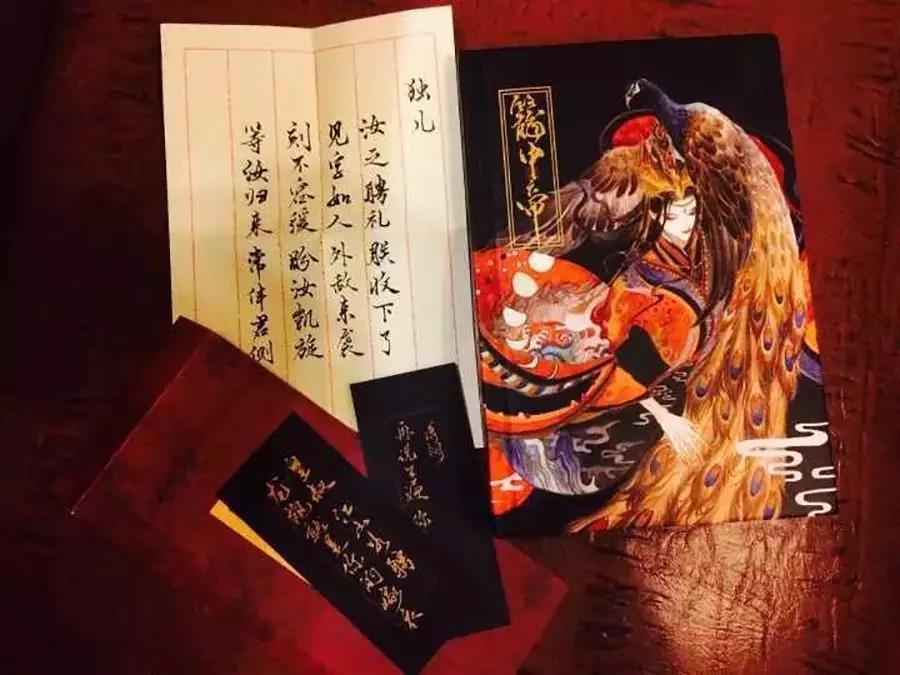 独儿
汝之聘礼 朕收下了
见字如人 外敌来袭
刻不容缓 盼汝凯旋
等汝归来 常伴君侧
籠中帝
皇叔